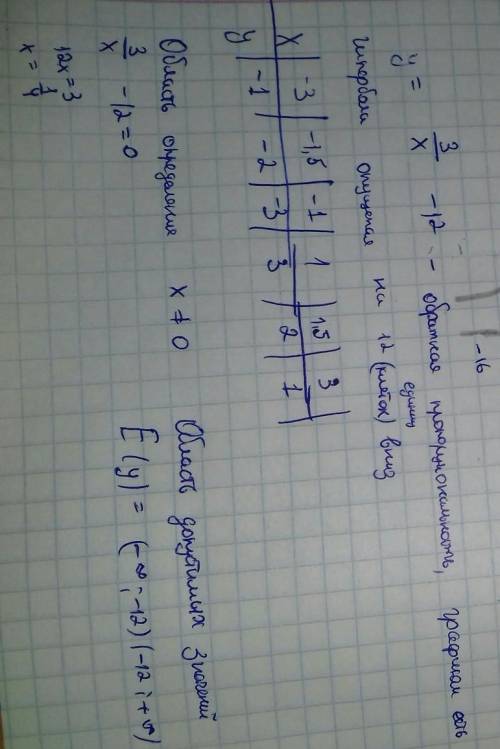 -16
y = 3/x -12 - обратная пропорциональность, графиком есть
гипербола опущеная на 12 (клеток) единиц вниз
x | -3 | -1,5 | -1 | 1 | 1,5 | 3
y | -1 | -2 | -3 | 3 | 2 | 1
Область определения x ≠ 0
3/x -12 = 0
12x = 3
x = 1/4
Область допустимых значений
E(y) = (-∞; -12) (-12; +∞)